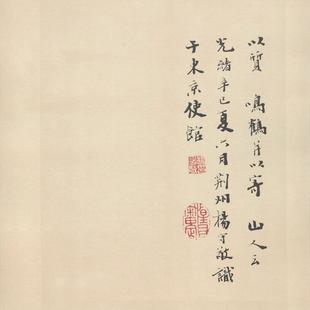 以質 鳴鶴并以寄 山人云
光緒辛巳夏六月荆州楊守敬識
于東京使館